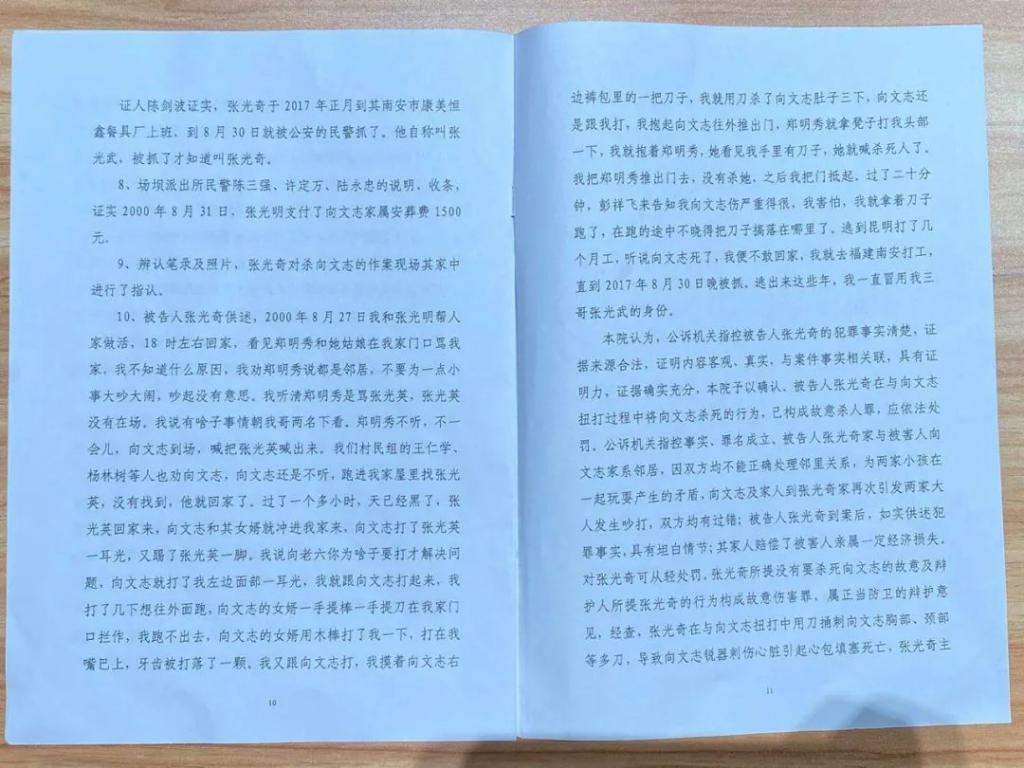 证人陈剑波证实，张光奇于 2017 年正月到其南安市康美恒
鑫餐具厂上班，到 8 月 30 日就被公安的民警抓了。他自称叫张
光武，被抓了才知道叫张光奇。
8、场坝派出所民警陈三强、许定万、陆永忠的说明、收条，
证实 2000 年 8 月 31 日，张光明支付了向文志家属安葬费 1500
元。
9、辨认笔录及照片，张光奇对杀向文志的作案现场其家中
进行了指认。
10、被告人张光奇供述，2000 年 8 月 27 日我和张光明帮人
家做活，18 时左右回家，看见郑明秀和她姑娘在我家门口骂我
家，我不知道什么原因，我劝郑明秀说都是邻居，不要为一点小
事大吵大闹，吵起没有意思。我听清郑明秀是骂张光英，张光英
没有在场。我说有啥子事情朝我哥两名下看。郑明秀不听，不一
会儿，向文志到场，喊把张光英喊出来。我们村民组的王仁学、
杨林树等人也劝向文志，向文志还是不听，跑进我家屋里找张光
英，没有找到，他就回家了。过了一个多小时，天已经黑了，张
光英回家来，向文志和其女婿就冲进我家来，向文志打了张光英
一耳光，又踢了张光英一脚。我说向老六你为啥子要打才解决问
题，向文志就打了我左边面部一耳光，我就跟向文志打起来，我
打了几下想往外面跑，向文志的女婿一手提棒一手提刀在我家门
口拦作，我跑不出去，向文志的女婿用木棒打了我一下，打在我
嘴巴上，牙齿被打落了一颗。我又跟向文志打，我摸着向文志右
10
边裤包里的一把刀子，我就用刀杀了向文志肚子三下，向文志还
是跟我打，我抱起向文志往外推出门，郑明秀就拿凳子打我头部
一下，我就抱着郑明秀，她看见我手里有刀子，她就喊杀死人了。
我把郑明秀推出门去，没有杀她，之后我把门抵起。过了二十分
钟，彭祥飞来告知我向文志伤严重得很，我害怕，我就拿着刀子
跑了，在跑的途中不晓得把刀子搞落在哪里了。逃到昆明打了几
个月工，听说向文志死了，我便不敢回家，我就去福建南安打工，
直到 2017 年 8 月 30 日晚被抓。逃出来这些年，我一直冒用我三
哥张光武的身份。
本院认为，公诉机关指控被告人张光奇的犯罪事实清楚，证
据来源合法，证明内容客观、真实，与案件事实相关联，具有证
明力，证据确实充分，本院予以确认。被告人张光奇在与向文志
扭打过程中将向文志杀死的行为，已构成故意杀人罪，应依法处
罚。公诉机关指控事实、罪名成立。被告人张光奇家与被害人向
文志家系邻居，因双方均不能正确处理邻里关系，为两家小孩在
一起玩耍产生的矛盾，向文志及家人到张光奇家再次引发两家大
人发生吵打，双方均有过错；被告人张光奇到案后，如实供述犯
罪事实，具有坦白情节；其家人赔偿了被害人亲属一定经济损失。
对张光奇可从轻处罚。张光奇所提没有要杀死向文志的故意及辩
护人所提张光奇的行为构成故意伤害罪，属正当防卫的辩护意
见，经查，张光奇在与向文志扭打中用刀捅刺向文志胸部、颈部
等多刀，导致向文志锐器刺伤心脏引起心包填塞死亡，张光奇主
11